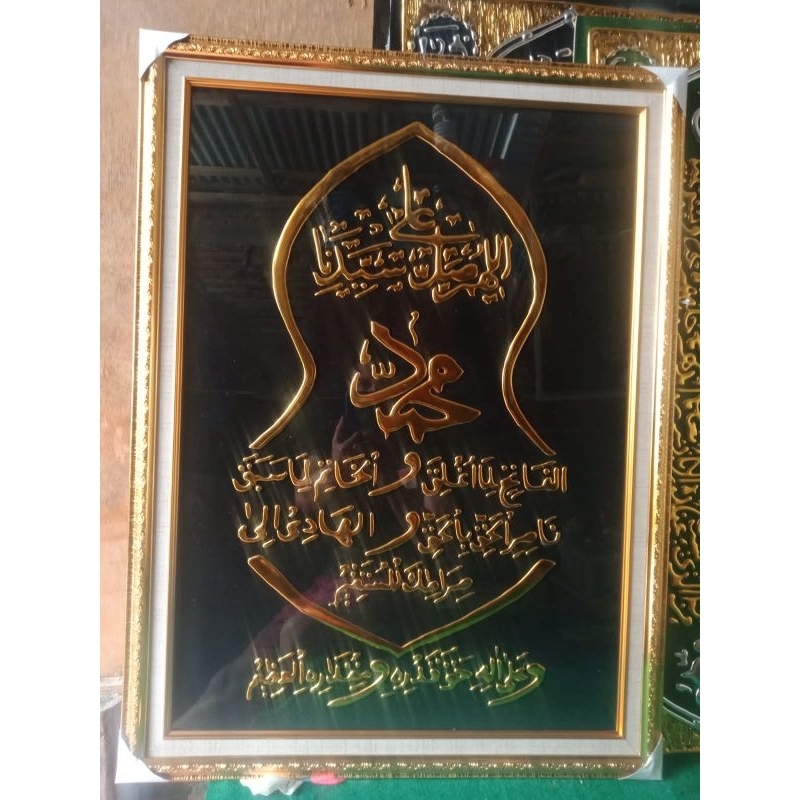 اللهم صل على سيدنا
محمد
الفاتح لما أغلق و الخاتم لما سبق
ناصر الحق بالحق و الهادي إلى
صراطك المستقيم
وعلى اله حق قدره و مقداره العظيم